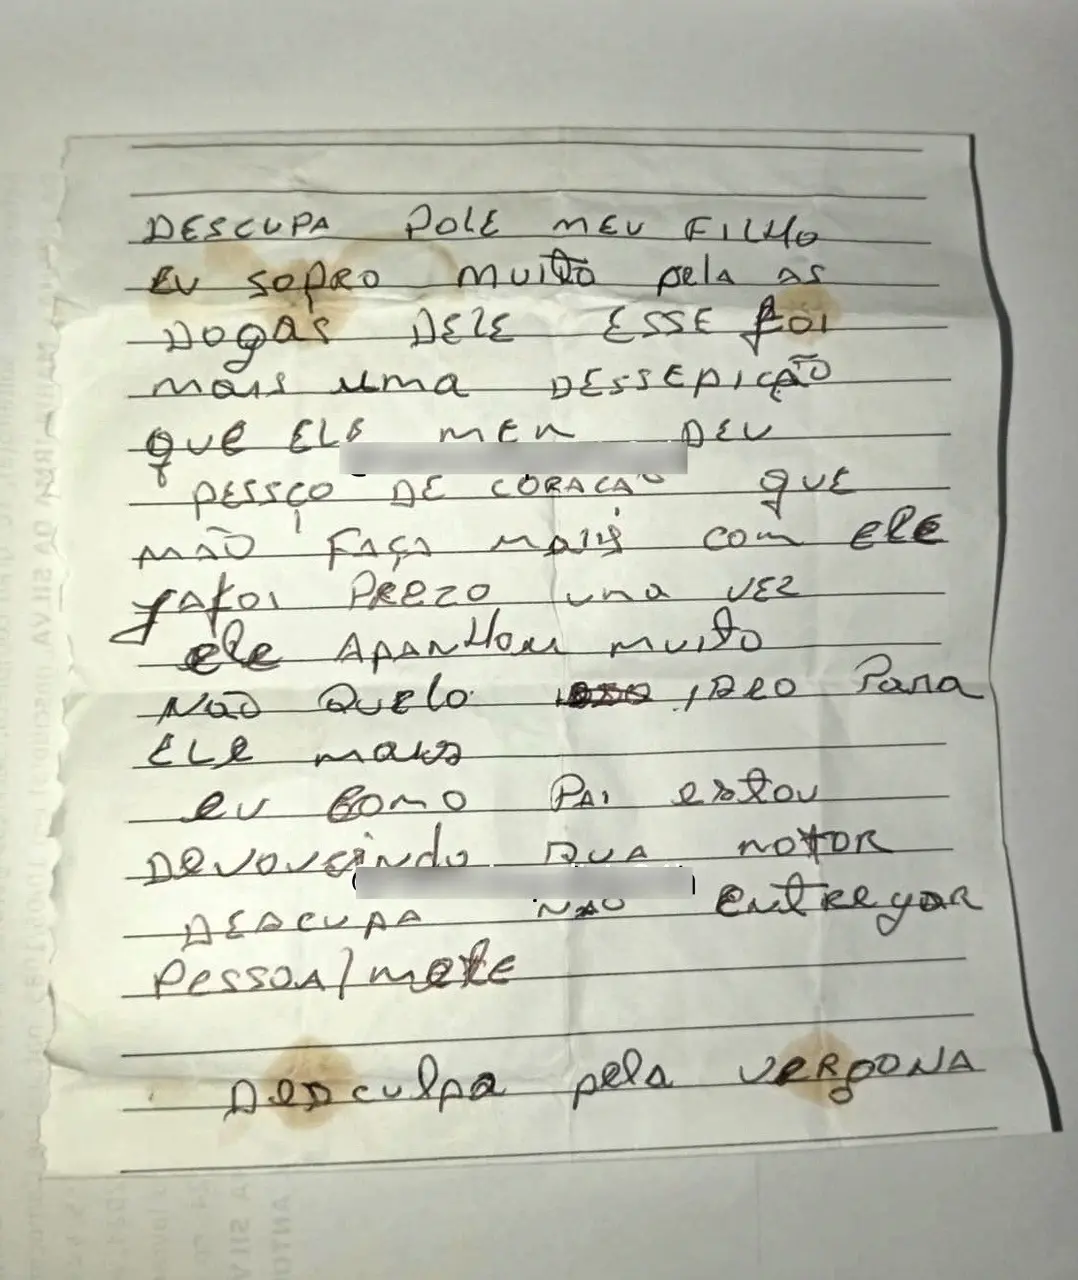 DESCUPA POLE MEU FILHO
EU SOPRO MUITO pela AS
DOGAS DELE ESSE FOI
mais uma DESSEPIÇÃO
QUE ELE MEU DEU
PESSÇO DE CORACAO QUE
MÃO FAÇA MAIS COM ELE
JAFOI PREZO UMA VEZ
ele APANHOU MUITO
NÃO QUELO PARA
ELE mais
EU COMO PAI estou
DEVOUSINDO SUA MOTOR
DEACUPA NAO ENTREGAR
PESSOALMETE
Desculpa pela VERGONA